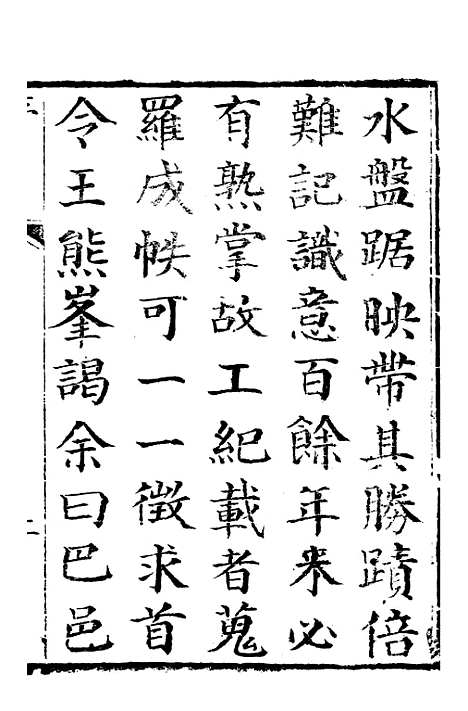 水盤踞映帶其勝蹟倍
難記識意百餘年來必
有熟掌故工紀載者蒐
羅成帙可一一徵求首
令王熊峯謁余曰巴邑